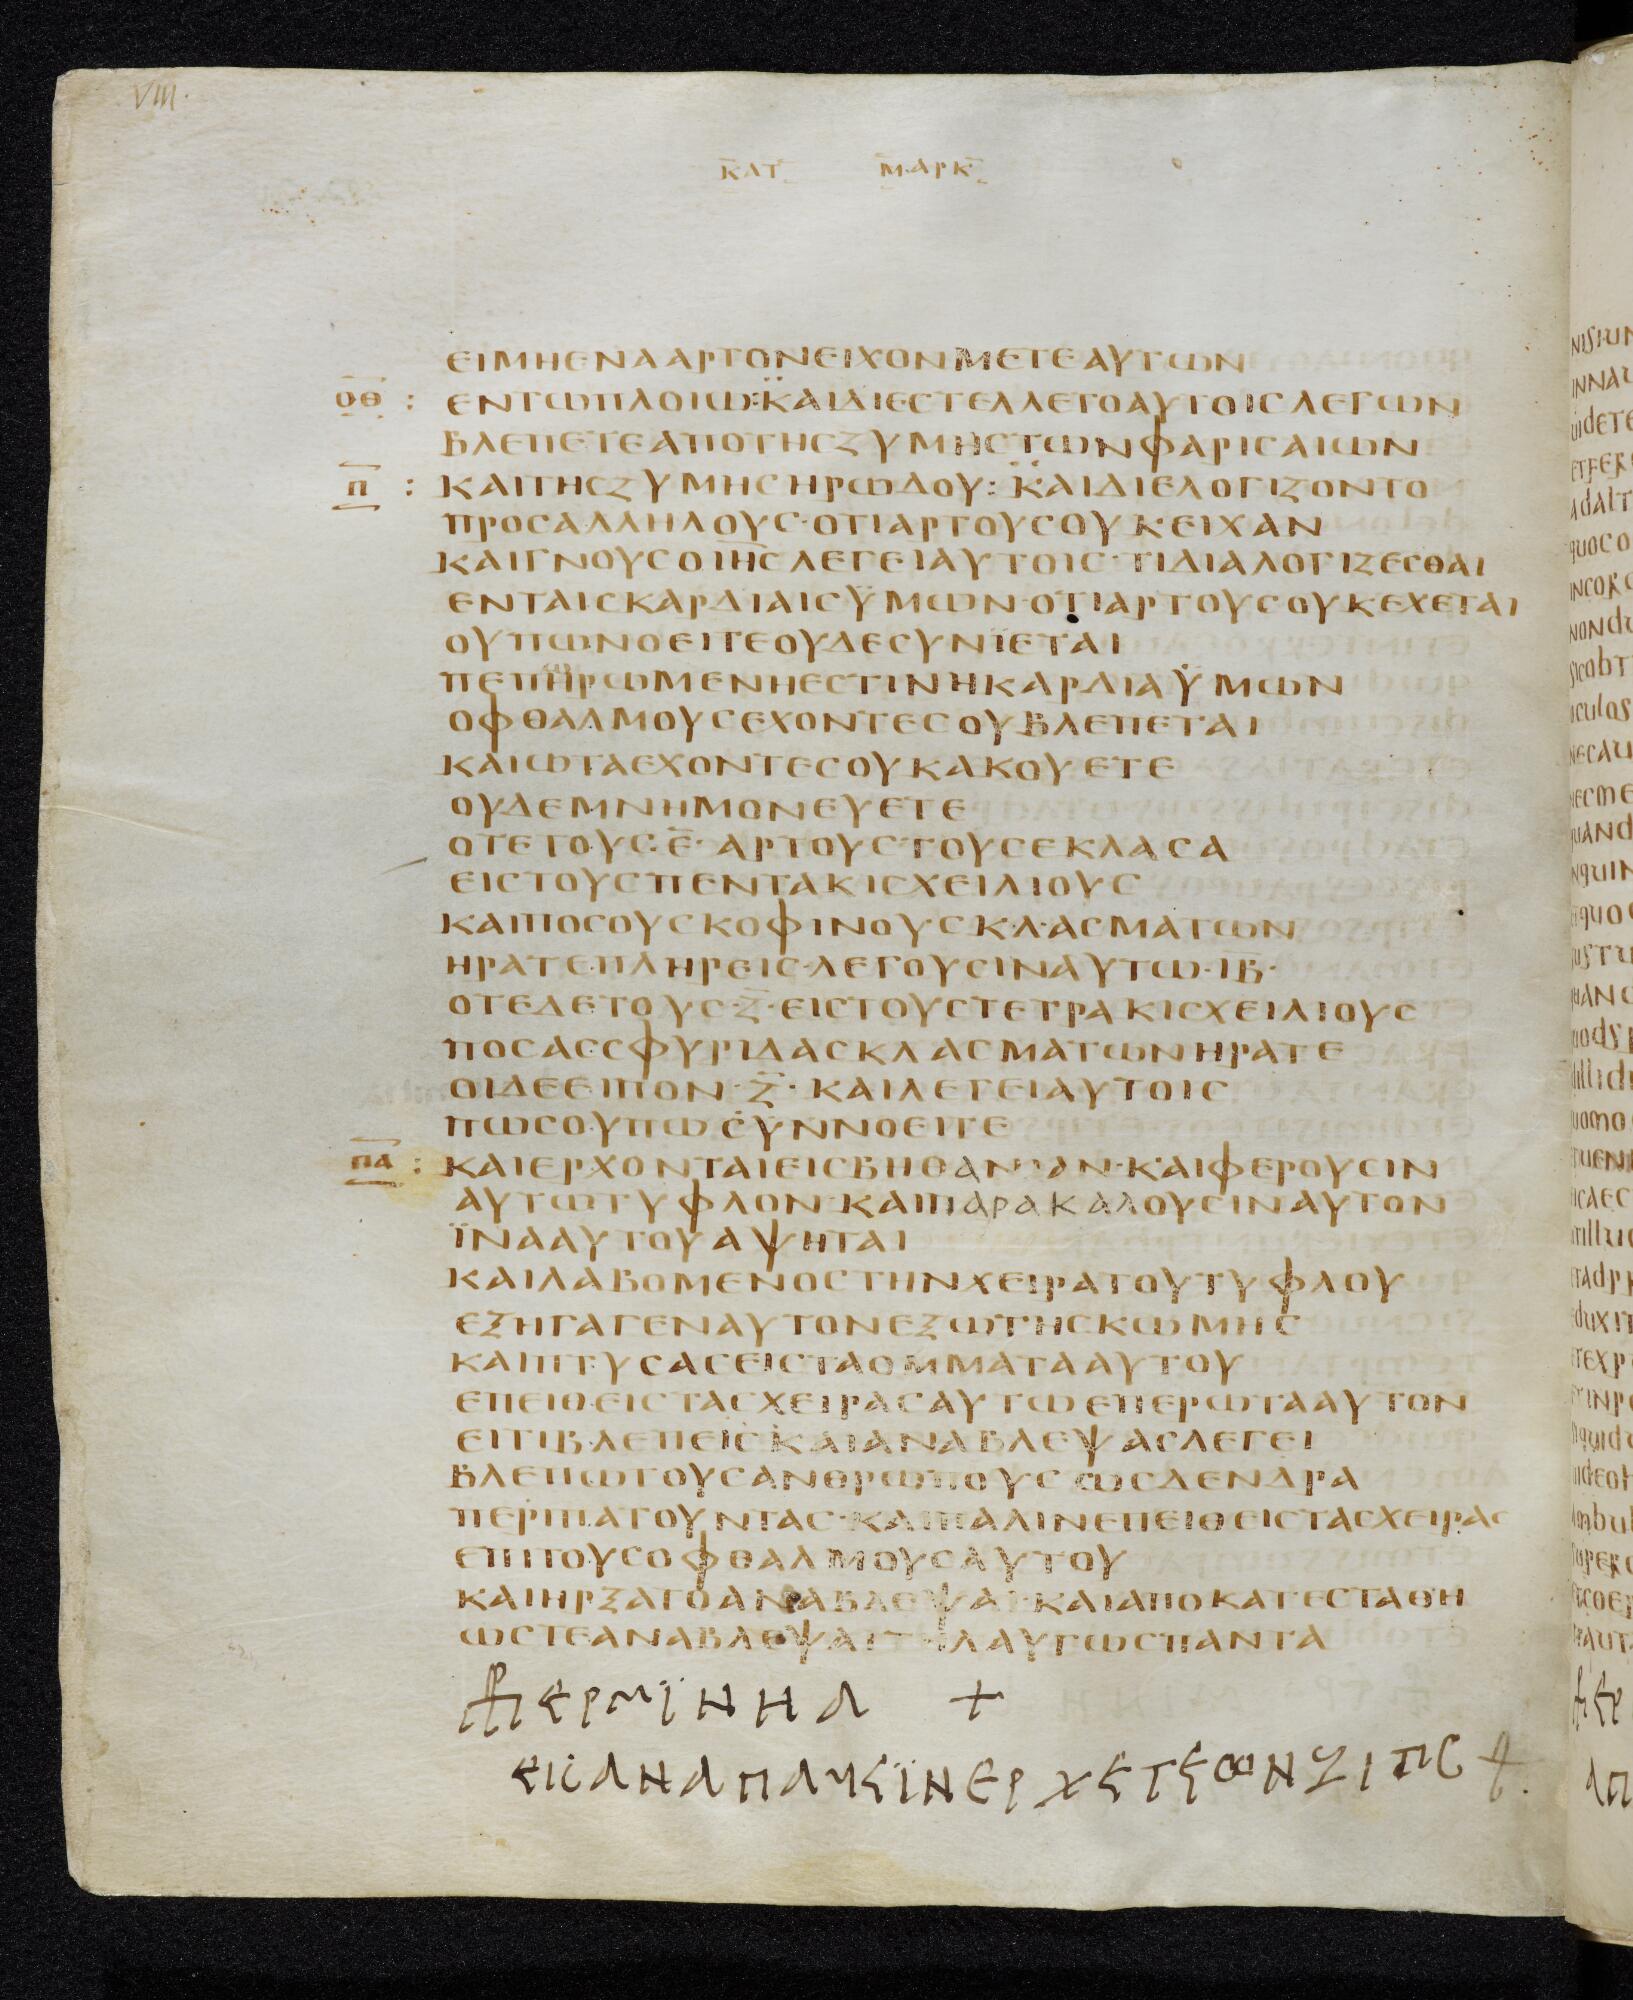 VIII.
ΚΑΤ ΜΑΡΚ
ΕΙΜΗΕΝΑΑΡΤΟΝΕΙΧΟΝΜΕΤΕΑΥΤΩΝ
ΟΘ : ΕΝΤΩΠΛΟΙΩ:ΚΑΙΔΙΕΣΤΕΛΛΕΤΟΑΥΤΟΙΣΛΕΓΩΝ
ΒΛΕΠΕΤΕΑΠΟΤΗΣΖΥΜΗΣΤΩΝΦΑΡΙΣΑΙΩΝ
Π : ΚΑΙΤΗΣΖΥΜΗΣΗΡΩΔΟΥ:ΚΑΙΔΙΕΛΟΓΙΖΟΝΤΟ
ΠΡΟΣΑΛΛΗΛΟΥΣ·ΟΤΙΑΡΤΟΥΣΟΥΚΕΙΧΑΝ
ΚΑΙΓΝΟΥΣΟΙΗΣΛΕΓΕΙΑΥΤΟΙΣ·ΤΙΔΙΑΛΟΓΙΖΕΣΘΑΙ
ΕΝΤΑΙΣΚΑΡΔΙΑΙΣΫΜΩΝ·ΟΤΙΑΡΤΟΥΣΟΥΚΕΧΕΤΑΙ
ΟΥΠΩΝΟΕΙΤΕΟΥΔΕΣΥΝΪΕΤΑΙ
ΠΕΠΗΡΩΜΕΝΗΕΣΤΙΝΗΚΑΡΔΙΑΫΜΩΝ
ΟΦΘΑΛΜΟΥΣΕΧΟΝΤΕΣΟΥΒΛΕΠΕΤΑΙ
ΚΑΙΩΤΑΕΧΟΝΤΕΣΟΥΚΑΚΟΥΕΤΕ
ΟΥΔΕΜΝΗΜΟΝΕΥΕΤΕ
ΟΤΕΤΟΥΣ·Ε̅·ΑΡΤΟΥΣΤΟΥΣΕΚΛΑΣΑ
ΕΙΣΤΟΥΣΠΕΝΤΑΚΙΣΧΕΙΛΙΟΥΣ
ΚΑΙΠΟΣΟΥΣΚΟΦΙΝΟΥΣΚΛΑΣΜΑΤΩΝ
ΗΡΑΤΕΠΛΗΡΕΙΣ·ΛΕΓΟΥΣΙΝΑΥΤΩ·ΙΒ·
ΟΤΕΔΕΤΟΥΣ·Ζ̅·ΕΙΣΤΟΥΣΤΕΤΡΑΚΙΣΧΕΙΛΙΟΥΣ
ΠΟΣΑΣΣΦΥΡΙΔΑΣΚΛΑΣΜΑΤΩΝΗΡΑΤΕ
ΟΙΔΕΕΙΠΟΝ·Ζ̅·ΚΑΙΛΕΓΕΙΑΥΤΟΙΣ
ΠΩΣΟΥΠΩΣΥΝΝΟΕΙΤΕ
ΠΑ : ΚΑΙΕΡΧΟΝΤΑΙΕΙΣΒΗΘΑΝΙΑΝ·ΚΑΙΦΕΡΟΥΣΙΝ
ΑΥΤΩΤΥΦΛΟΝ·ΚΑΙΠΑΡΑΚΑΛΟΥΣΙΝΑΥΤΟΝ
ΪΝΑΑΥΤΟΥΑΨΗΤΑΙ
ΚΑΙΛΑΒΟΜΕΝΟΣΤΗΝΧΕΙΡΑΤΟΥΤΥΦΛΟΥ
ΕΞΗΓΑΓΕΝΑΥΤΟΝΕΞΩΤΗΣΚΩΜΗΣ
ΚΑΙΠΤΥΣΑΣΕΙΣΤΑΟΜΜΑΤΑΑΥΤΟΥ
ΕΠΕΙΘΕΙΣΤΑΣΧΕΙΡΑΣΑΥΤΩΕΠΕΡΩΤΑΑΥΤΟΝ
ΕΙΤΙΒΛΕΠΕΙΣΚΑΙΑΝΑΒΛΕΨΑΣΛΕΓΕΙ
ΒΛΕΠΩΤΟΥΣΑΝΘΡΩΠΟΥΣΩΣΔΕΝΔΡΑ
ΠΕΡΙΠΑΤΟΥΝΤΑΣ·ΚΑΙΠΑΛΙΝΕΠΕΙΘΕΙΣΤΑΣΧΕΙΡΑΣ
ΕΠΙΤΟΥΣΟΦΘΑΛΜΟΥΣΑΥΤΟΥ
ΚΑΙΗΡΞΑΤΟΑΝΑΒΛΕΨΑΙ·ΚΑΙΑΠΟΚΑΤΕΣΤΑΘΗ
ΩΣΤΕΑΝΑΒΛΕΨΑΙΤΗΛΑΥΓΩΣΠΑΝΤΑ
ΕΡΜΪΝΗΑ +
ΕΙΣΑΝΑΠΑΥΣΙΝΕΡΧΕΤΕ